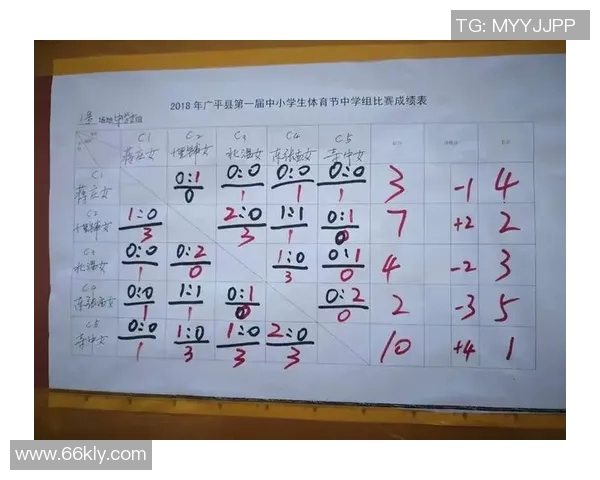 TG: MYYJJPP
2018 年广平县第一届中小学生体育节中学组比赛成绩表
1号 场地 中学女组
C1 C2 C3 C4 C5
蒋庄女 十里铺女 北温女 南张孟女 寺中女
C1 0:1 0:0 0:0 0:0 3 -1 4
蒋庄女 0 1 1 1
C2 1:0 2:0 1:1 0:1 7 +2 2
十里铺女 3 3 1 0
C3 0:0 0:2 1:0 0:1 4 -2 3
北温女 1 0 3 0
C4 0:0 1:1 0:1 0:2 2 -3 5
南张孟女 1 1 0 0
C5 0:0 1:0 1:0 2:0 10 +4 1
寺中女 1 3 3 3
www.66kly.com